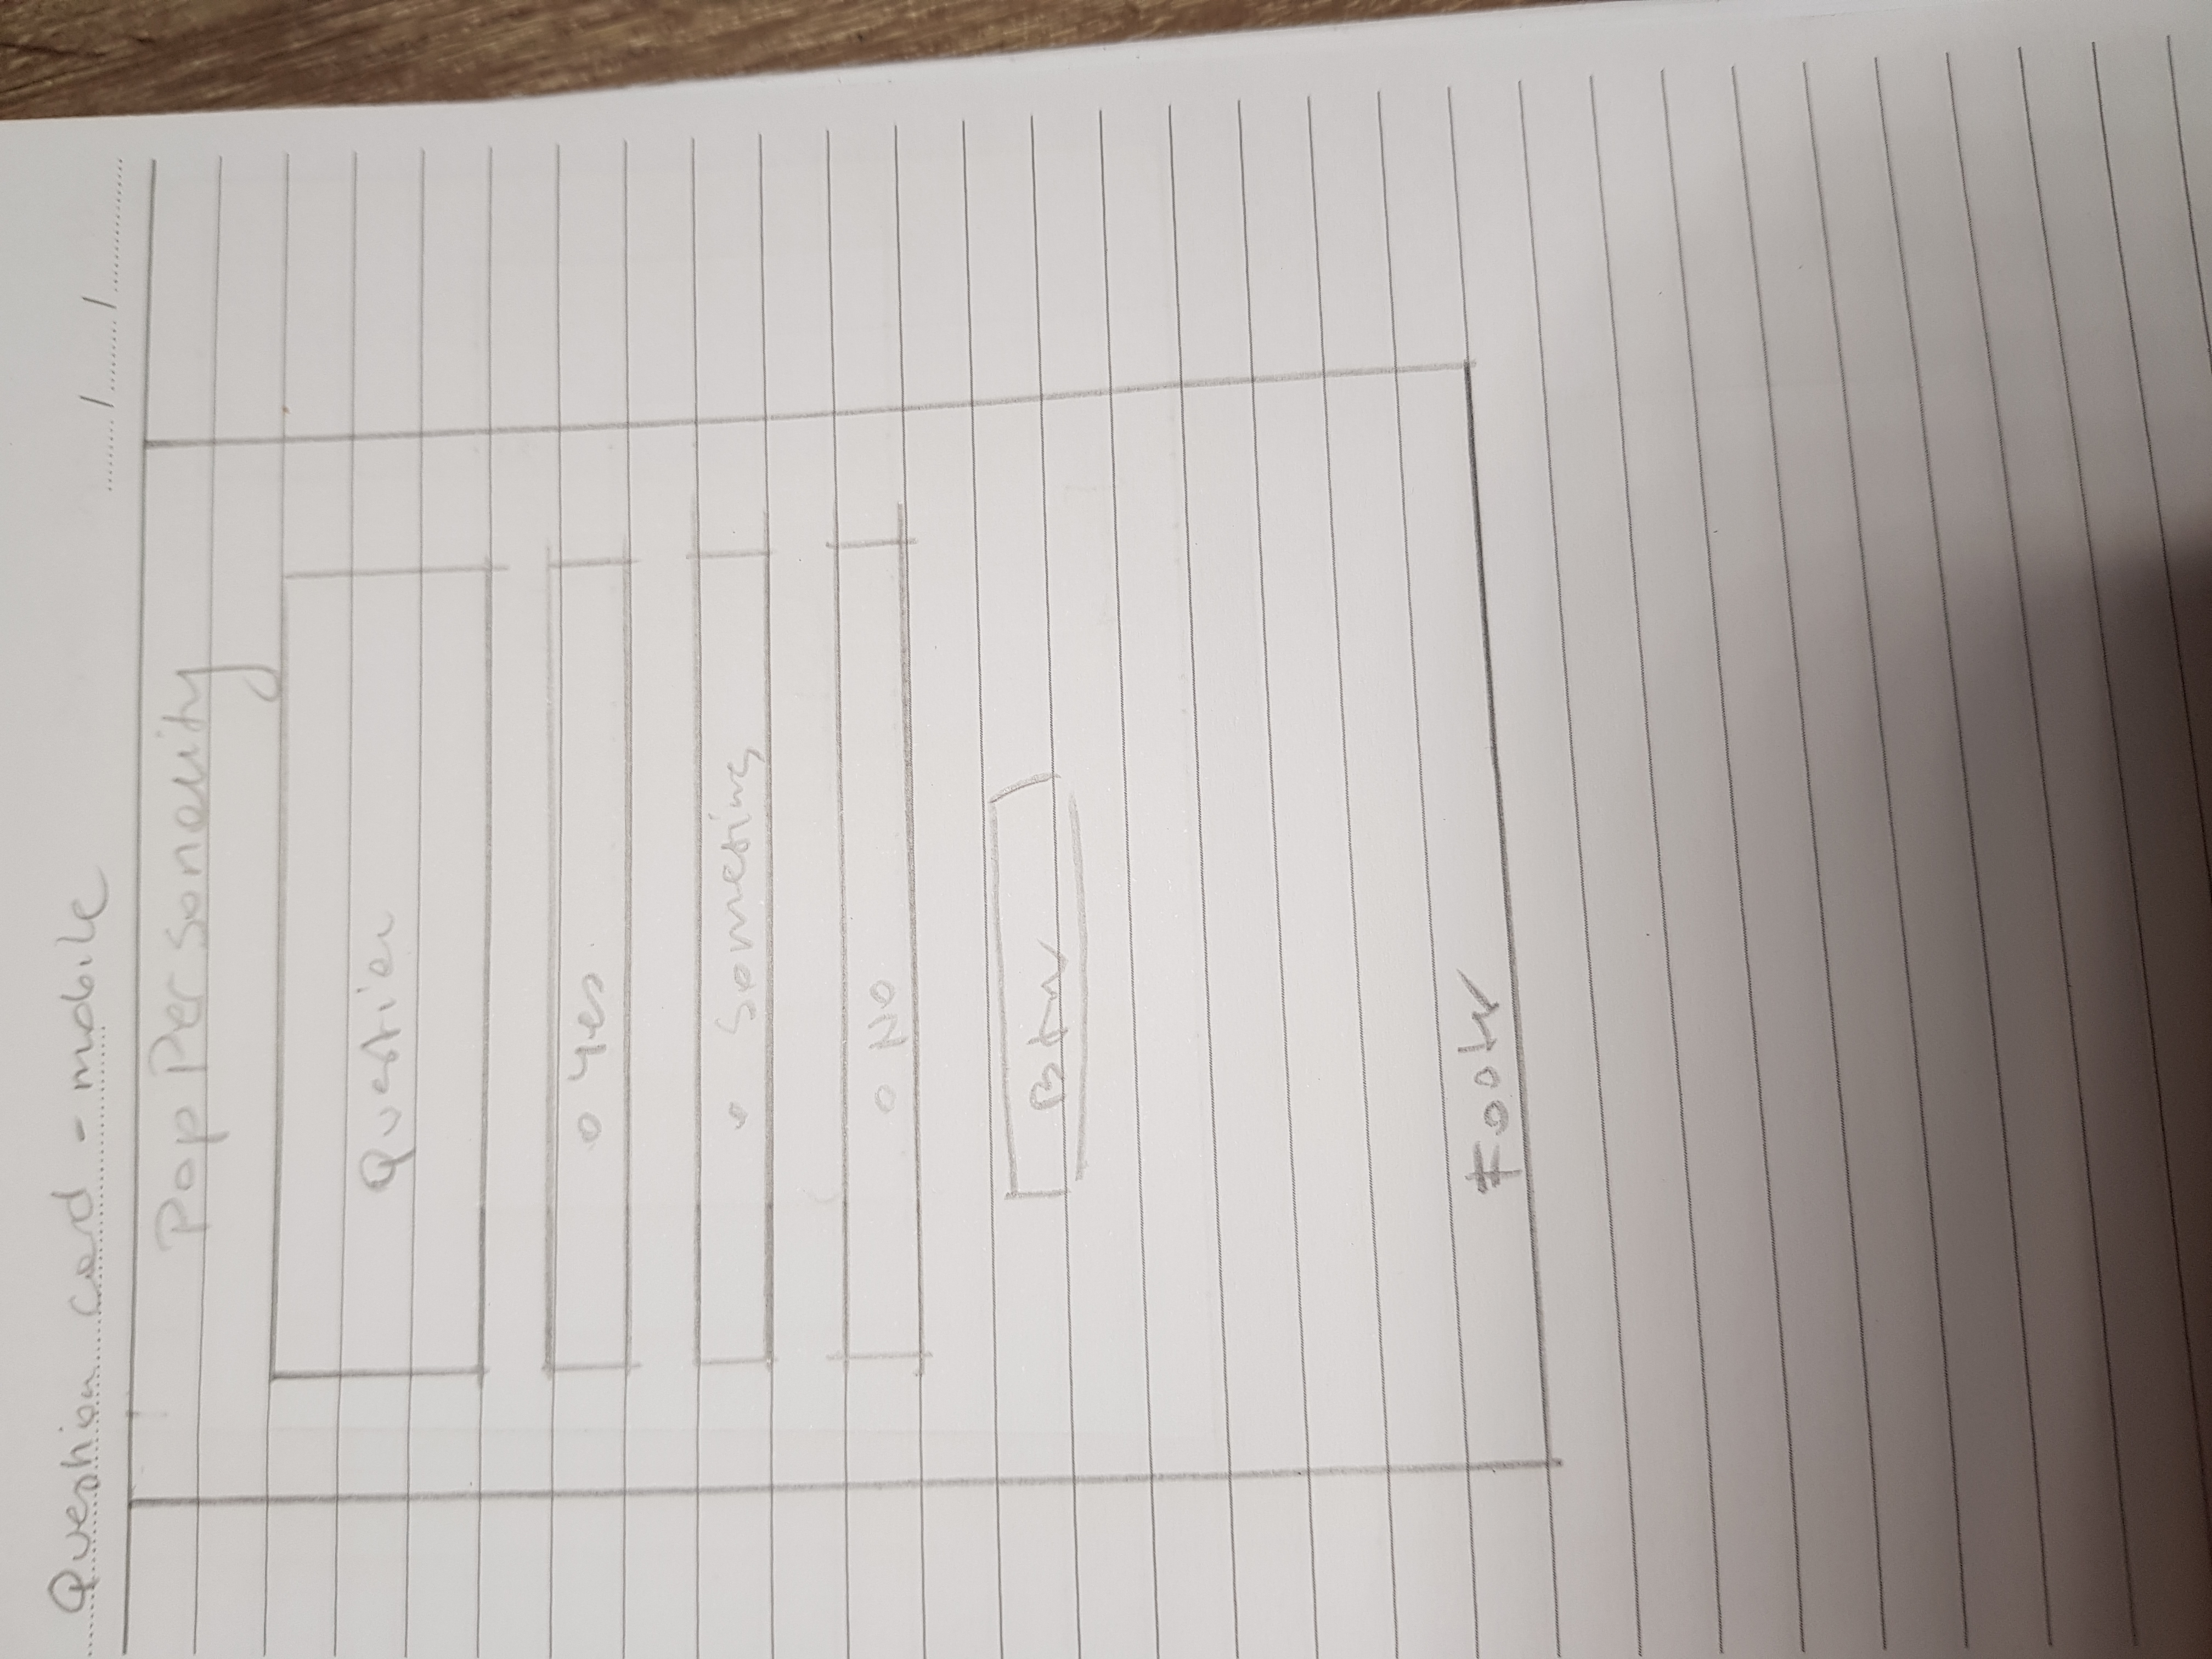 Question card - mobile
/ /
Pop Personality
Question
o Yes
o Someting
o No
Btn
Footer